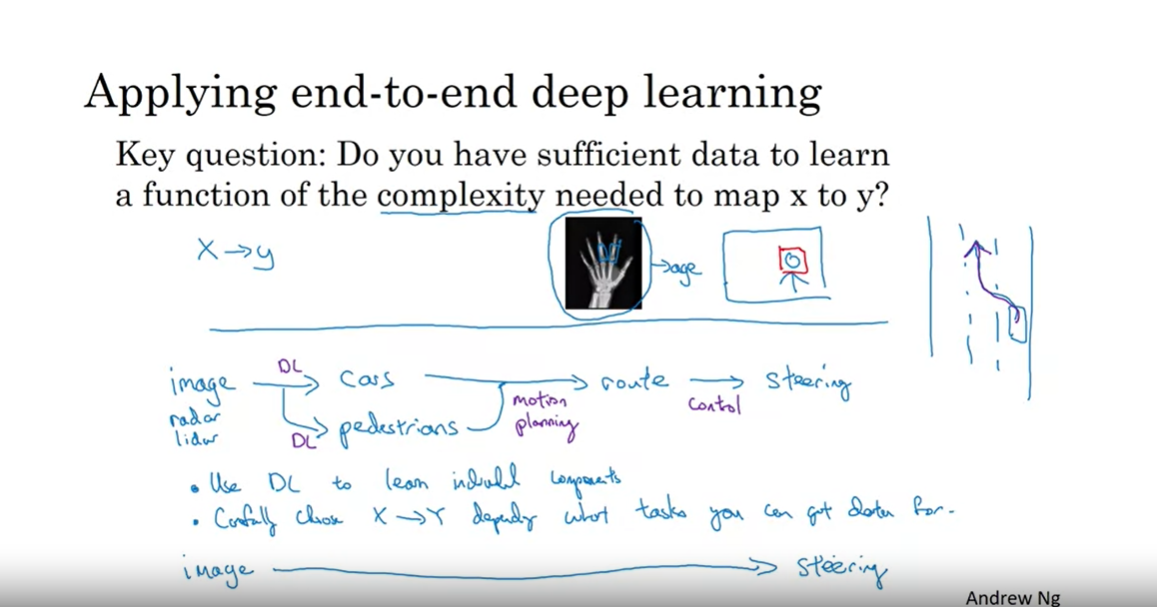 Applying end-to-end deep learning
Key question: Do you have sufficient data to learn
a function of the complexity needed to map x to y?
X → y
→ age
image
radar
lidar
DL
cars
DL
pedestrians
motion
planning
route
control
steering
• Use DL to learn individual components
• Carefully choose X → Y depending what tasks you can get data for.
image → steering
Andrew Ng